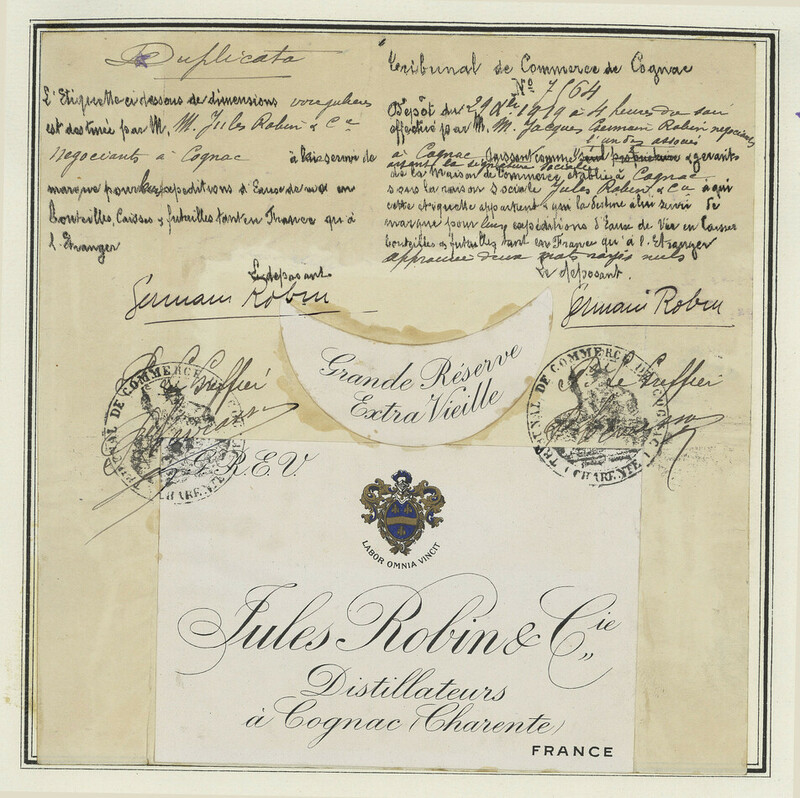 Duplicata
L'Etiquette ci dessous de dimensions irregulieres
est destinée par M. M. Jules Robin & Cie
négociants à Cognac à laisser servir de
marque pour leurs expeditions d'Eaux de vie en
Bouteilles, Caisses & futailles tant en France qu'à
l'Etranger
Le déposant
Germain Robin
Le Greffier
Tribunal de Commerce de Cognac
No 7164
Dépôt du 29 1919 à 4 heures du soir
effectué par M. M. Jacques Germain Robin negociant
l'un des associés
à Cognac, agissant comme seul proprietaire & gerant
ayant la signature sociale
de la Maison de Commerce, établie à Cognac
sous la raison sociale Jules Robin & Cie à qui
cette etiquette appartient & qui la destine à lui servir de
marque pour leurs expéditions d'Eaux de Vie en Caisses
bouteilles & futailles tant en France qu'à l'Etranger
approuvé deux mots rayés nuls
Le déposant.
Germain Robin
Le Greffier
TRIBUNAL DE COMMERCE DE COGNAC (CHARENTE)
TRIBUNAL DE COMMERCE DE COGNAC (CHARENTE)
Grande Réserve
Extra Vieille
G.R.E.V.
LABOR OMNIA VINCIT
Jules Robin & Cie
Distillateurs
à Cognac (Charente)
FRANCE